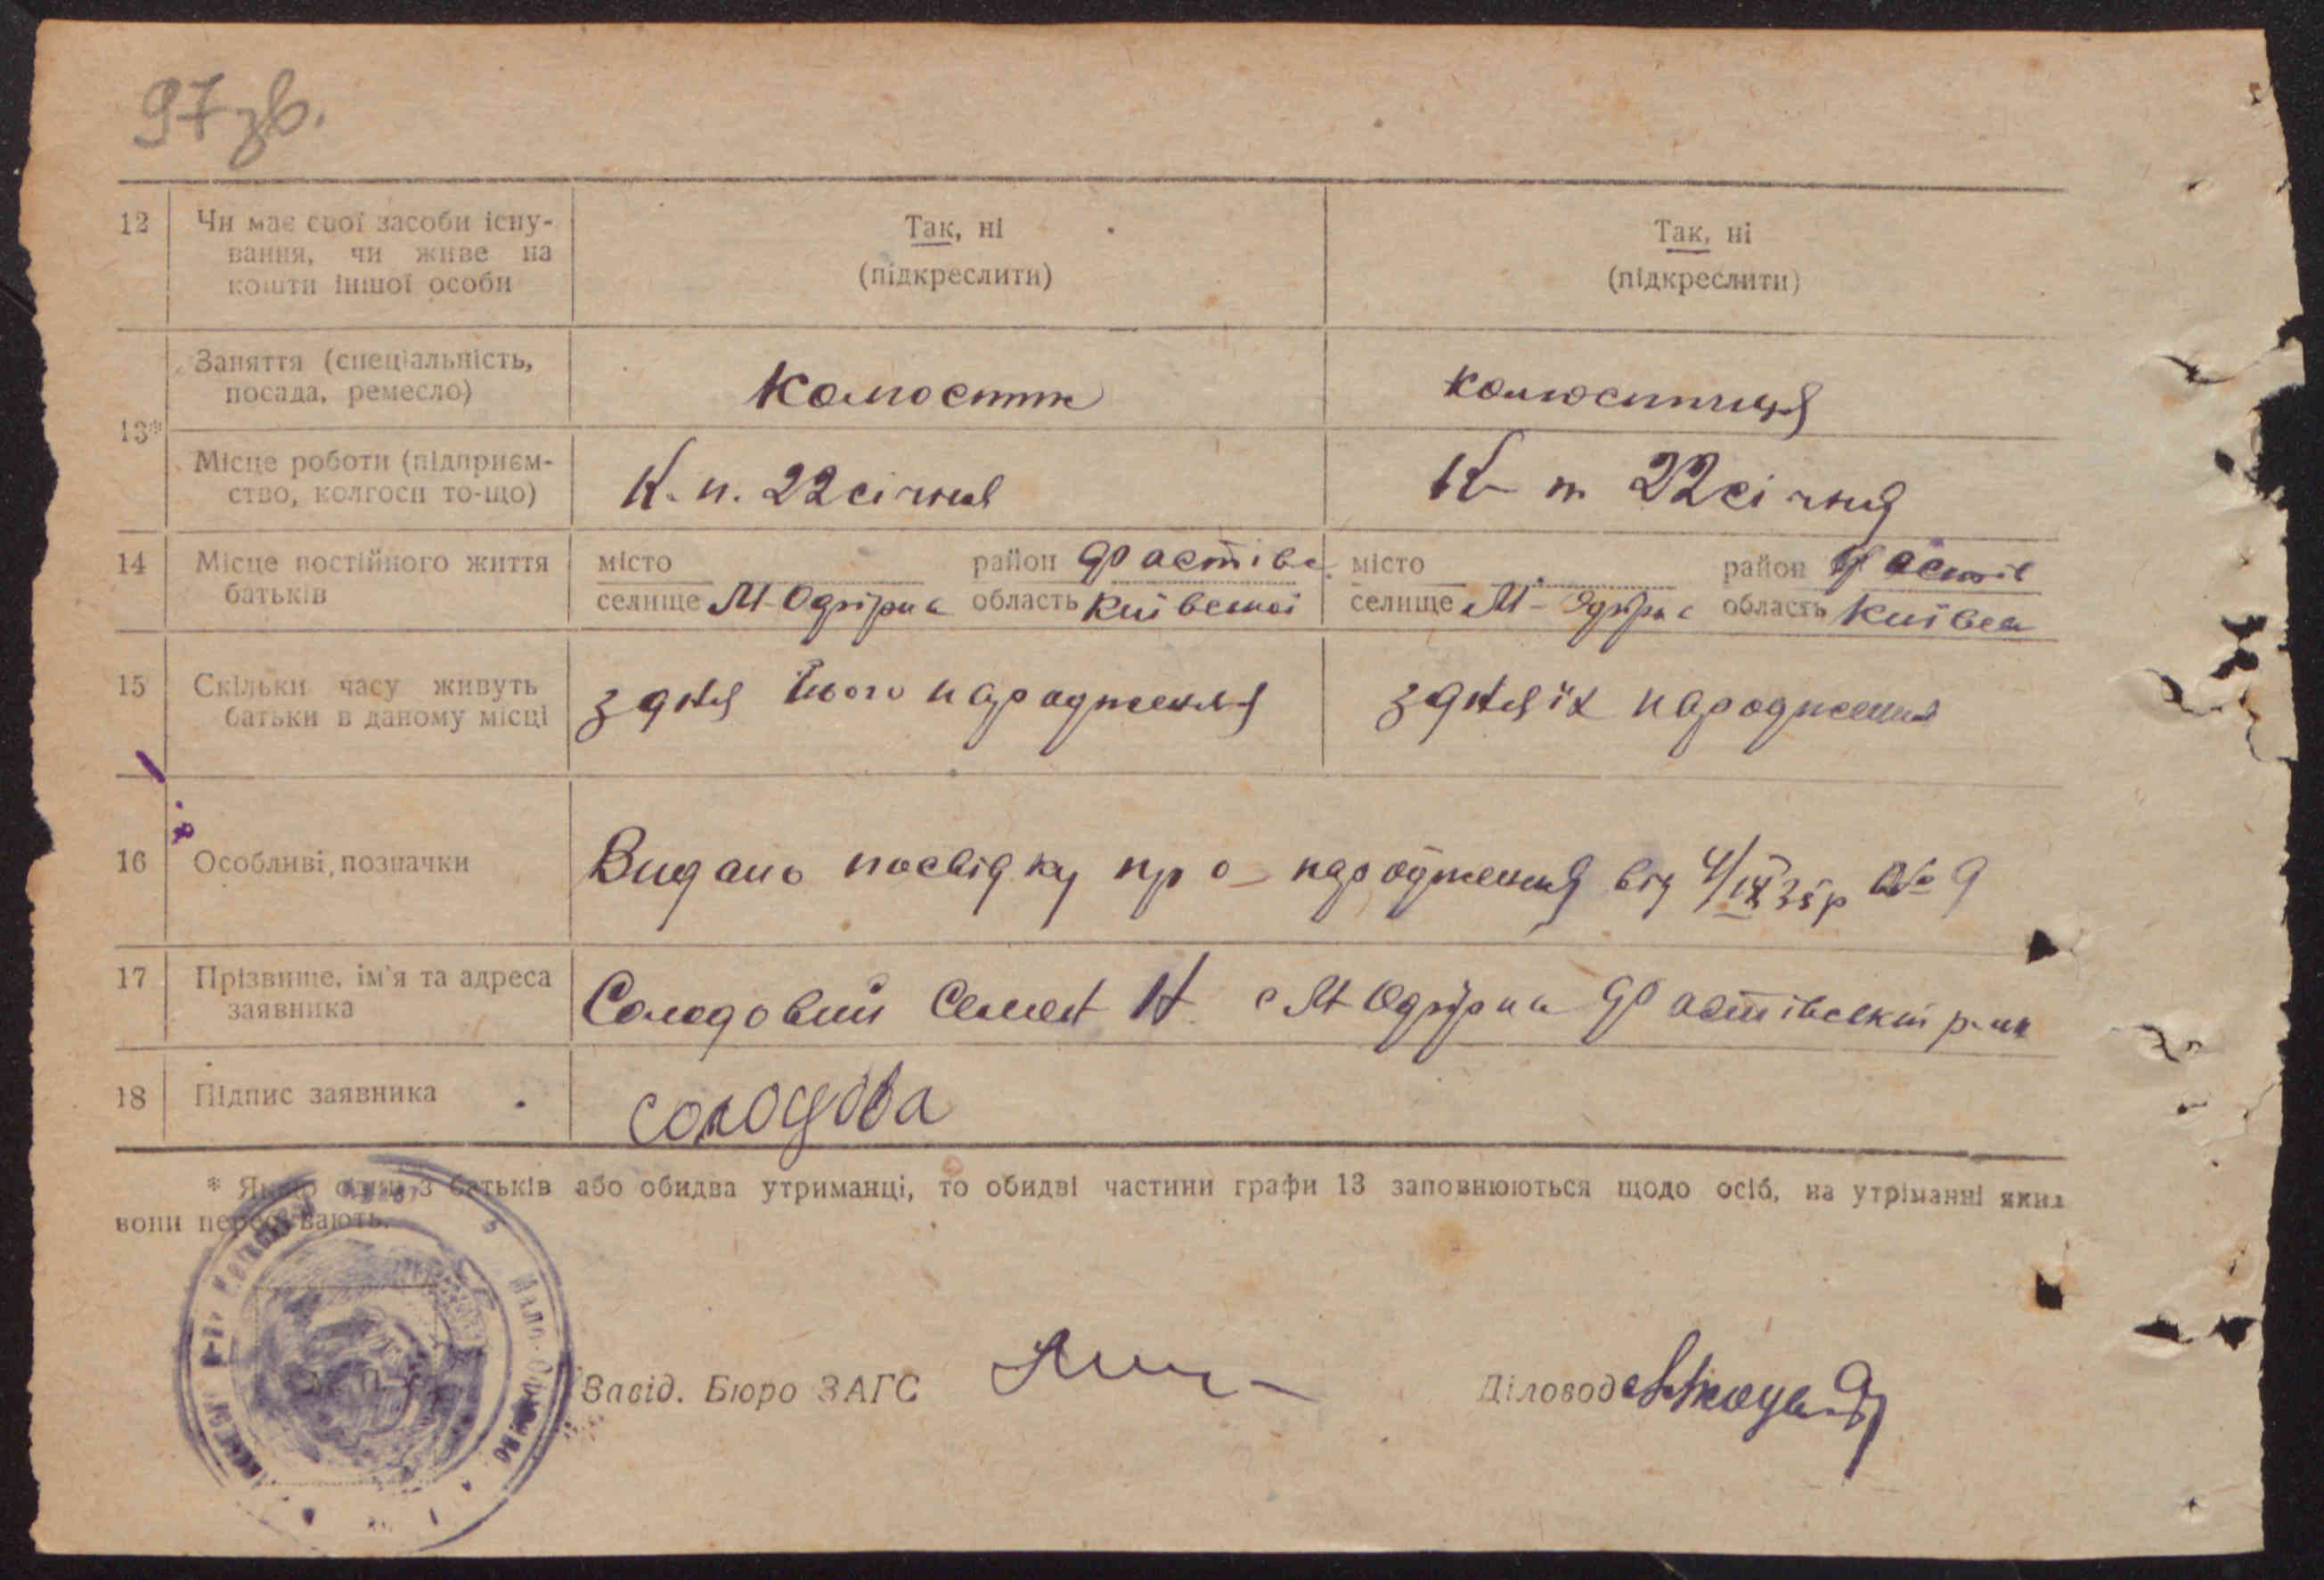 97 зв.
12 Чи має свої засоби існу-
вання, чи живе на
кошти іншої особи
Так, ні
(підкреслити)
Так, ні
(підкреслити)
13*
Заняття (спеціальність,
посада, ремесло)
Колгоспник
колгоспниця
Місце роботи (підприєм-
ство, колгосп то-що)
К. п. 22 січня
К п 22 січня
14 Місце постійного життя
батьків
місто район Фастівс
селище М-Офірна область Київської
місто район Фастів
селище М-Офірна область Київськ
15 Скільки часу живуть
батьки в даному місці
з дня його народження
з дня їх народження
16 Особливі, позначки
Видано посвідку про народження від 4/IX 35 р № 9
17 Прізвище, ім'я та адреса
заявника
Солодовий Семен Н с М Офірна Фастівський р-ну
18 Підпис заявника
солодова
* Якщо один з батьків або обидва утриманці, то обидві частини графи 13 заповнюються щодо осіб, на утріманні яких
вони перебувають.
Завід. Бюро ЗАГС
Діловод